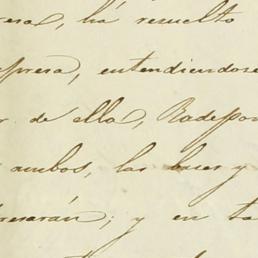 resa, há resuelto
presa, entendiendose
r. de ella, Radepon
ambos, las bases y
resarán; y en ta